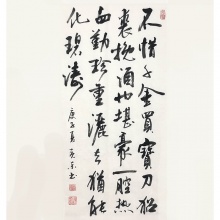 不惜千金買寶刀貂
裘換酒也堪豪一腔熱
血勤珍重灑去猶能
化碧濤
庚子夏
書